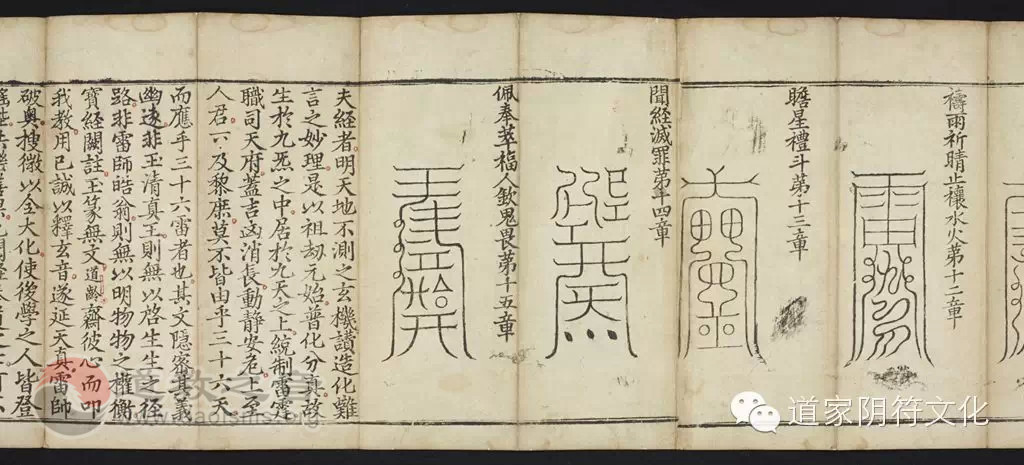 禱雨祈晴止禳水火第十二章
瞻星禮斗第十三章
聞經滅罪第十四章
佩奉萃福人欽鬼畏第十五章
夫經者明天地不測之玄機讚造化難
言之妙理是以祖劫元始普化分真故
生於九炁之中居於九天之上統制雷霆
職司天府蓋吉凶消長動靜安危上至
人君下及黎庶莫不皆由乎三十六天
而應乎三十六雷者也其文隱密其義
幽邃非玉清真王則無以啓生生之徑
路非雷師皓翁則無以明物物之權衡
寶經闡註玉篆無文道齡齋彼心而叩
我教用已誠以釋玄音遂延天真雷師
破奥搜微以全大化使後學之人皆登
道教之音
daoisms.org
道家阴符文化